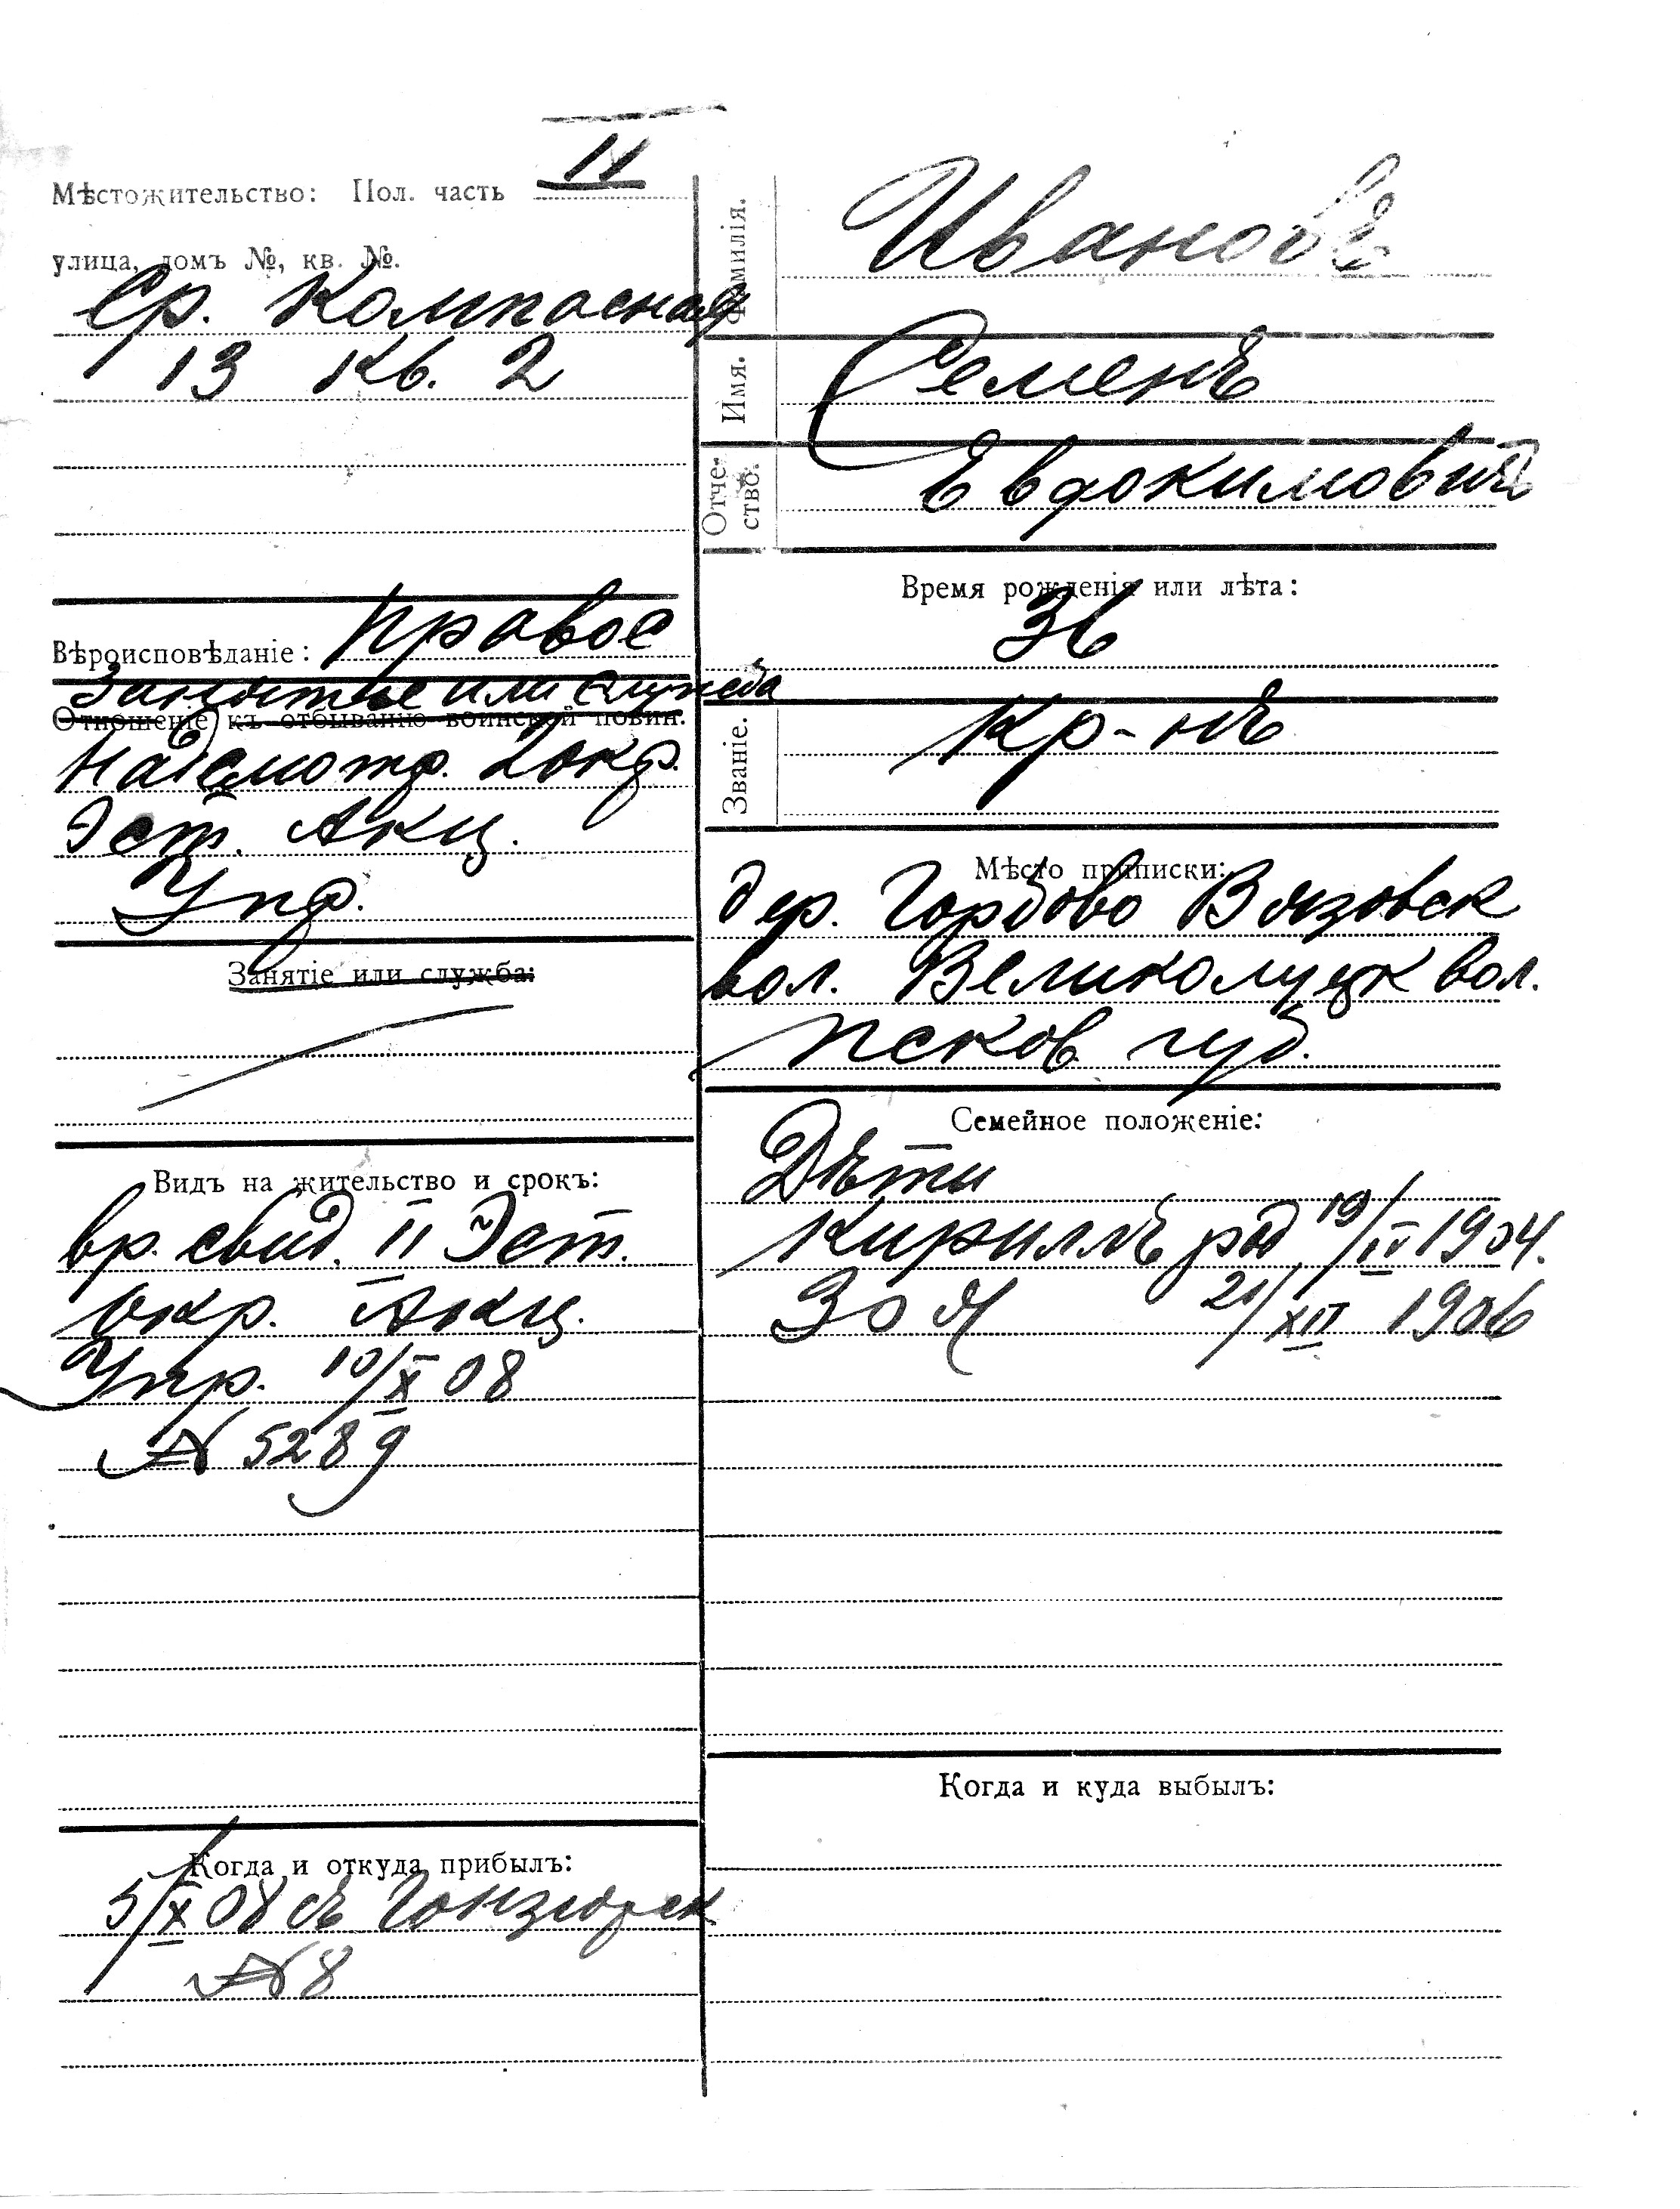 Мѣстожительство: Пол. часть II
улица, домъ №, кв. №.
Ср. Компасная
13 кв. 2
Вѣроисповѣданіе: Правос
Занятіе или служба
Отношеніе къ отбыванію воинской повин.
Надсмотр. 2 окр.
Эст. Акц.
Упр.
Занятіе или служба:
Видъ на жительство и срокъ:
вр. свид. II Эст.
Окр. Акц.
Упр. 10/X 08
№ 5289
Когда и откуда прибылъ:
5/X 08 съ
№ 8
Фамилія. Ивановъ
Имя. Семенъ
Отчество. Евдокимовичъ
Время рожденія или лѣта:
36
Званіе. Кр-нъ
Мѣсто приписки:
дер. Горбово Вязовск
вол. Великолуцк вол.
Псков губ.
Семейное положеніе:
Дѣти
Кириллъ род 19/IV 1904.
Зоя 21/XII 1906
Когда и куда выбылъ: